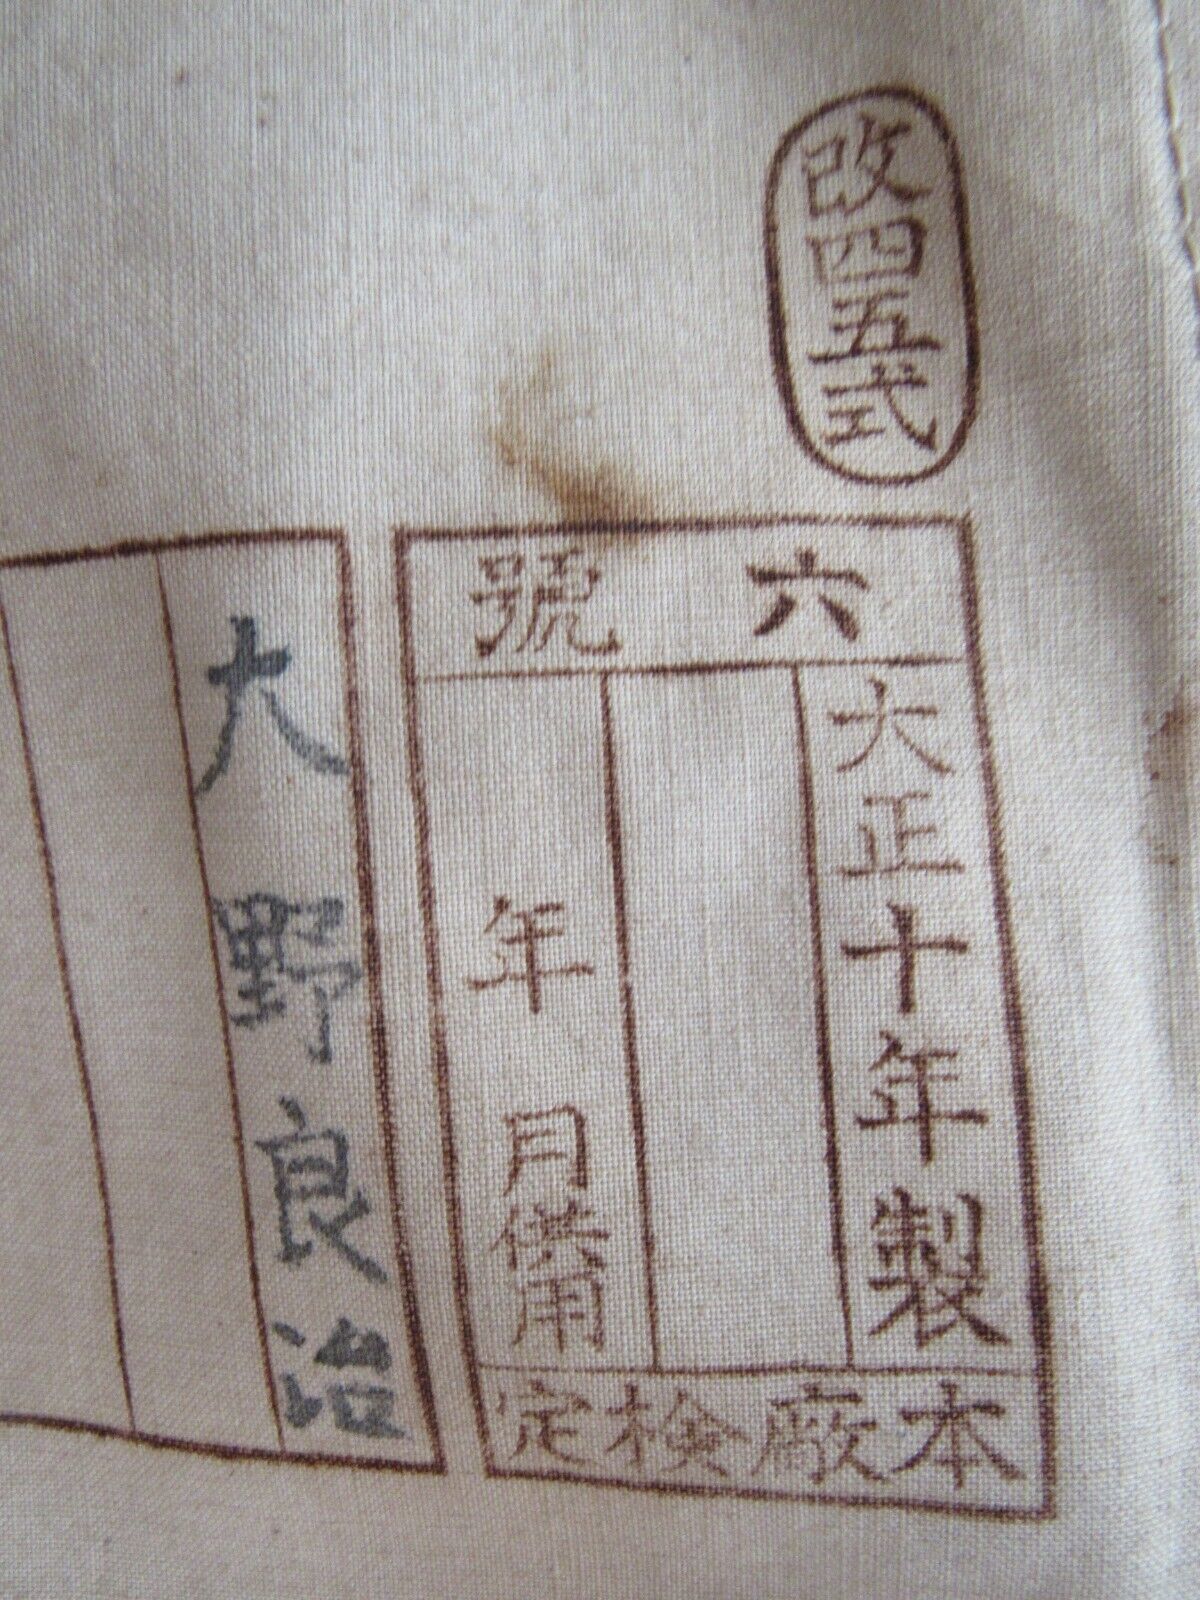 改四五式
六號
大正十年製
年 月供用
本廠検定
大野良治